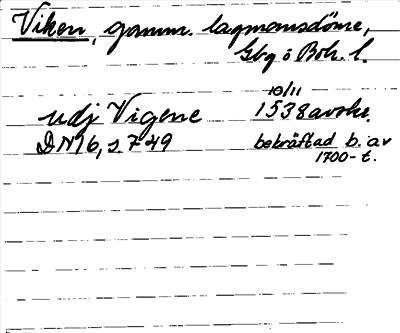 Viken, gamm. lagmansdöme,
Gbg o Boh. l.
10/11
udj Vigene 1538 avskr.
DN 16, s 749 bekräftad b. av
1700-t.